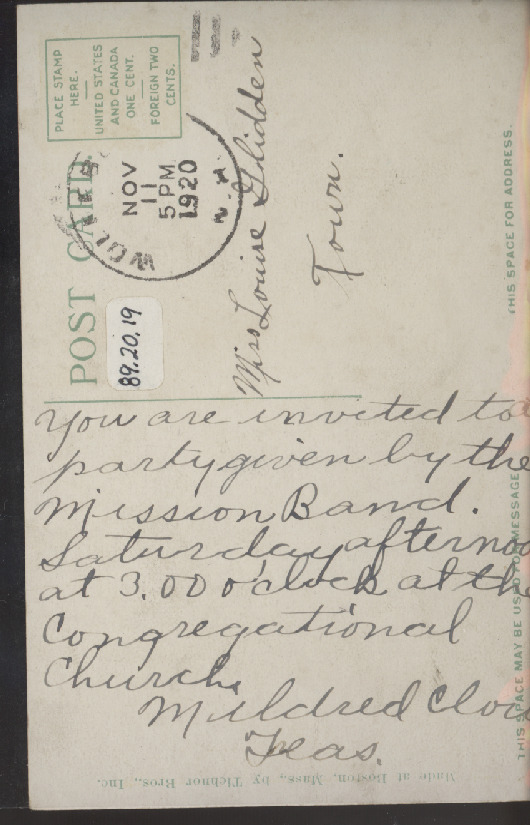 PLACE STAMP
HERE.
UNITED STATES
AND CANADA
ONE CENT.
FOREIGN TWO
CENTS.
POST CARD
NOV
11
5 PM
1920
N.H.
89.20.19
Miss Louise Glidden
Town.
THIS SPACE FOR ADDRESS.
You are invited to a
party given by the
Mission Band.
Saturday afternoo
at 3.00 o'clock at the
Congregational
Church.
Mildred
Treas.
THIS SPACE MAY BE USED FOR MESSAGE
Made at Boston, Mass., by Tichnor Bros., Inc.